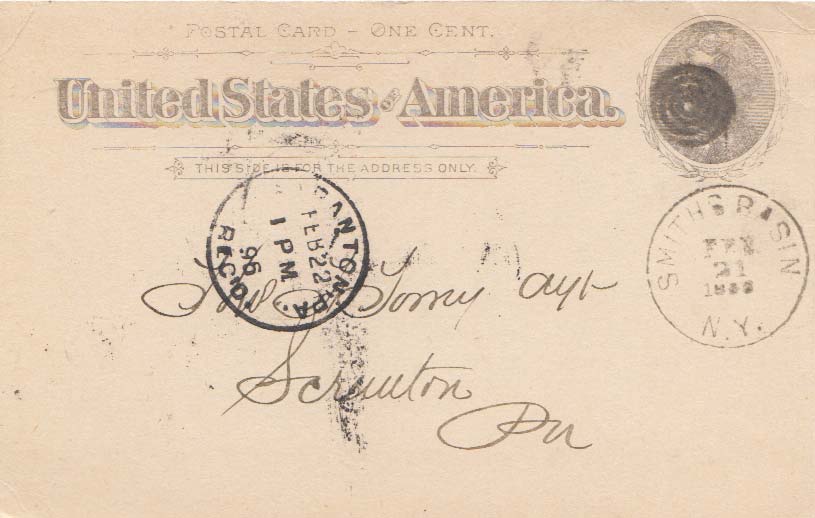 POSTAL CARD – ONE CENT.
United States of America.
THIS SIDE IS FOR THE ADDRESS ONLY.
SMITHS BASIN
FEB
21
N.Y.
RANTON, PA.
FEB 22
1 PM
96
REC'D.
Torrey Agt
Scranton
Pa